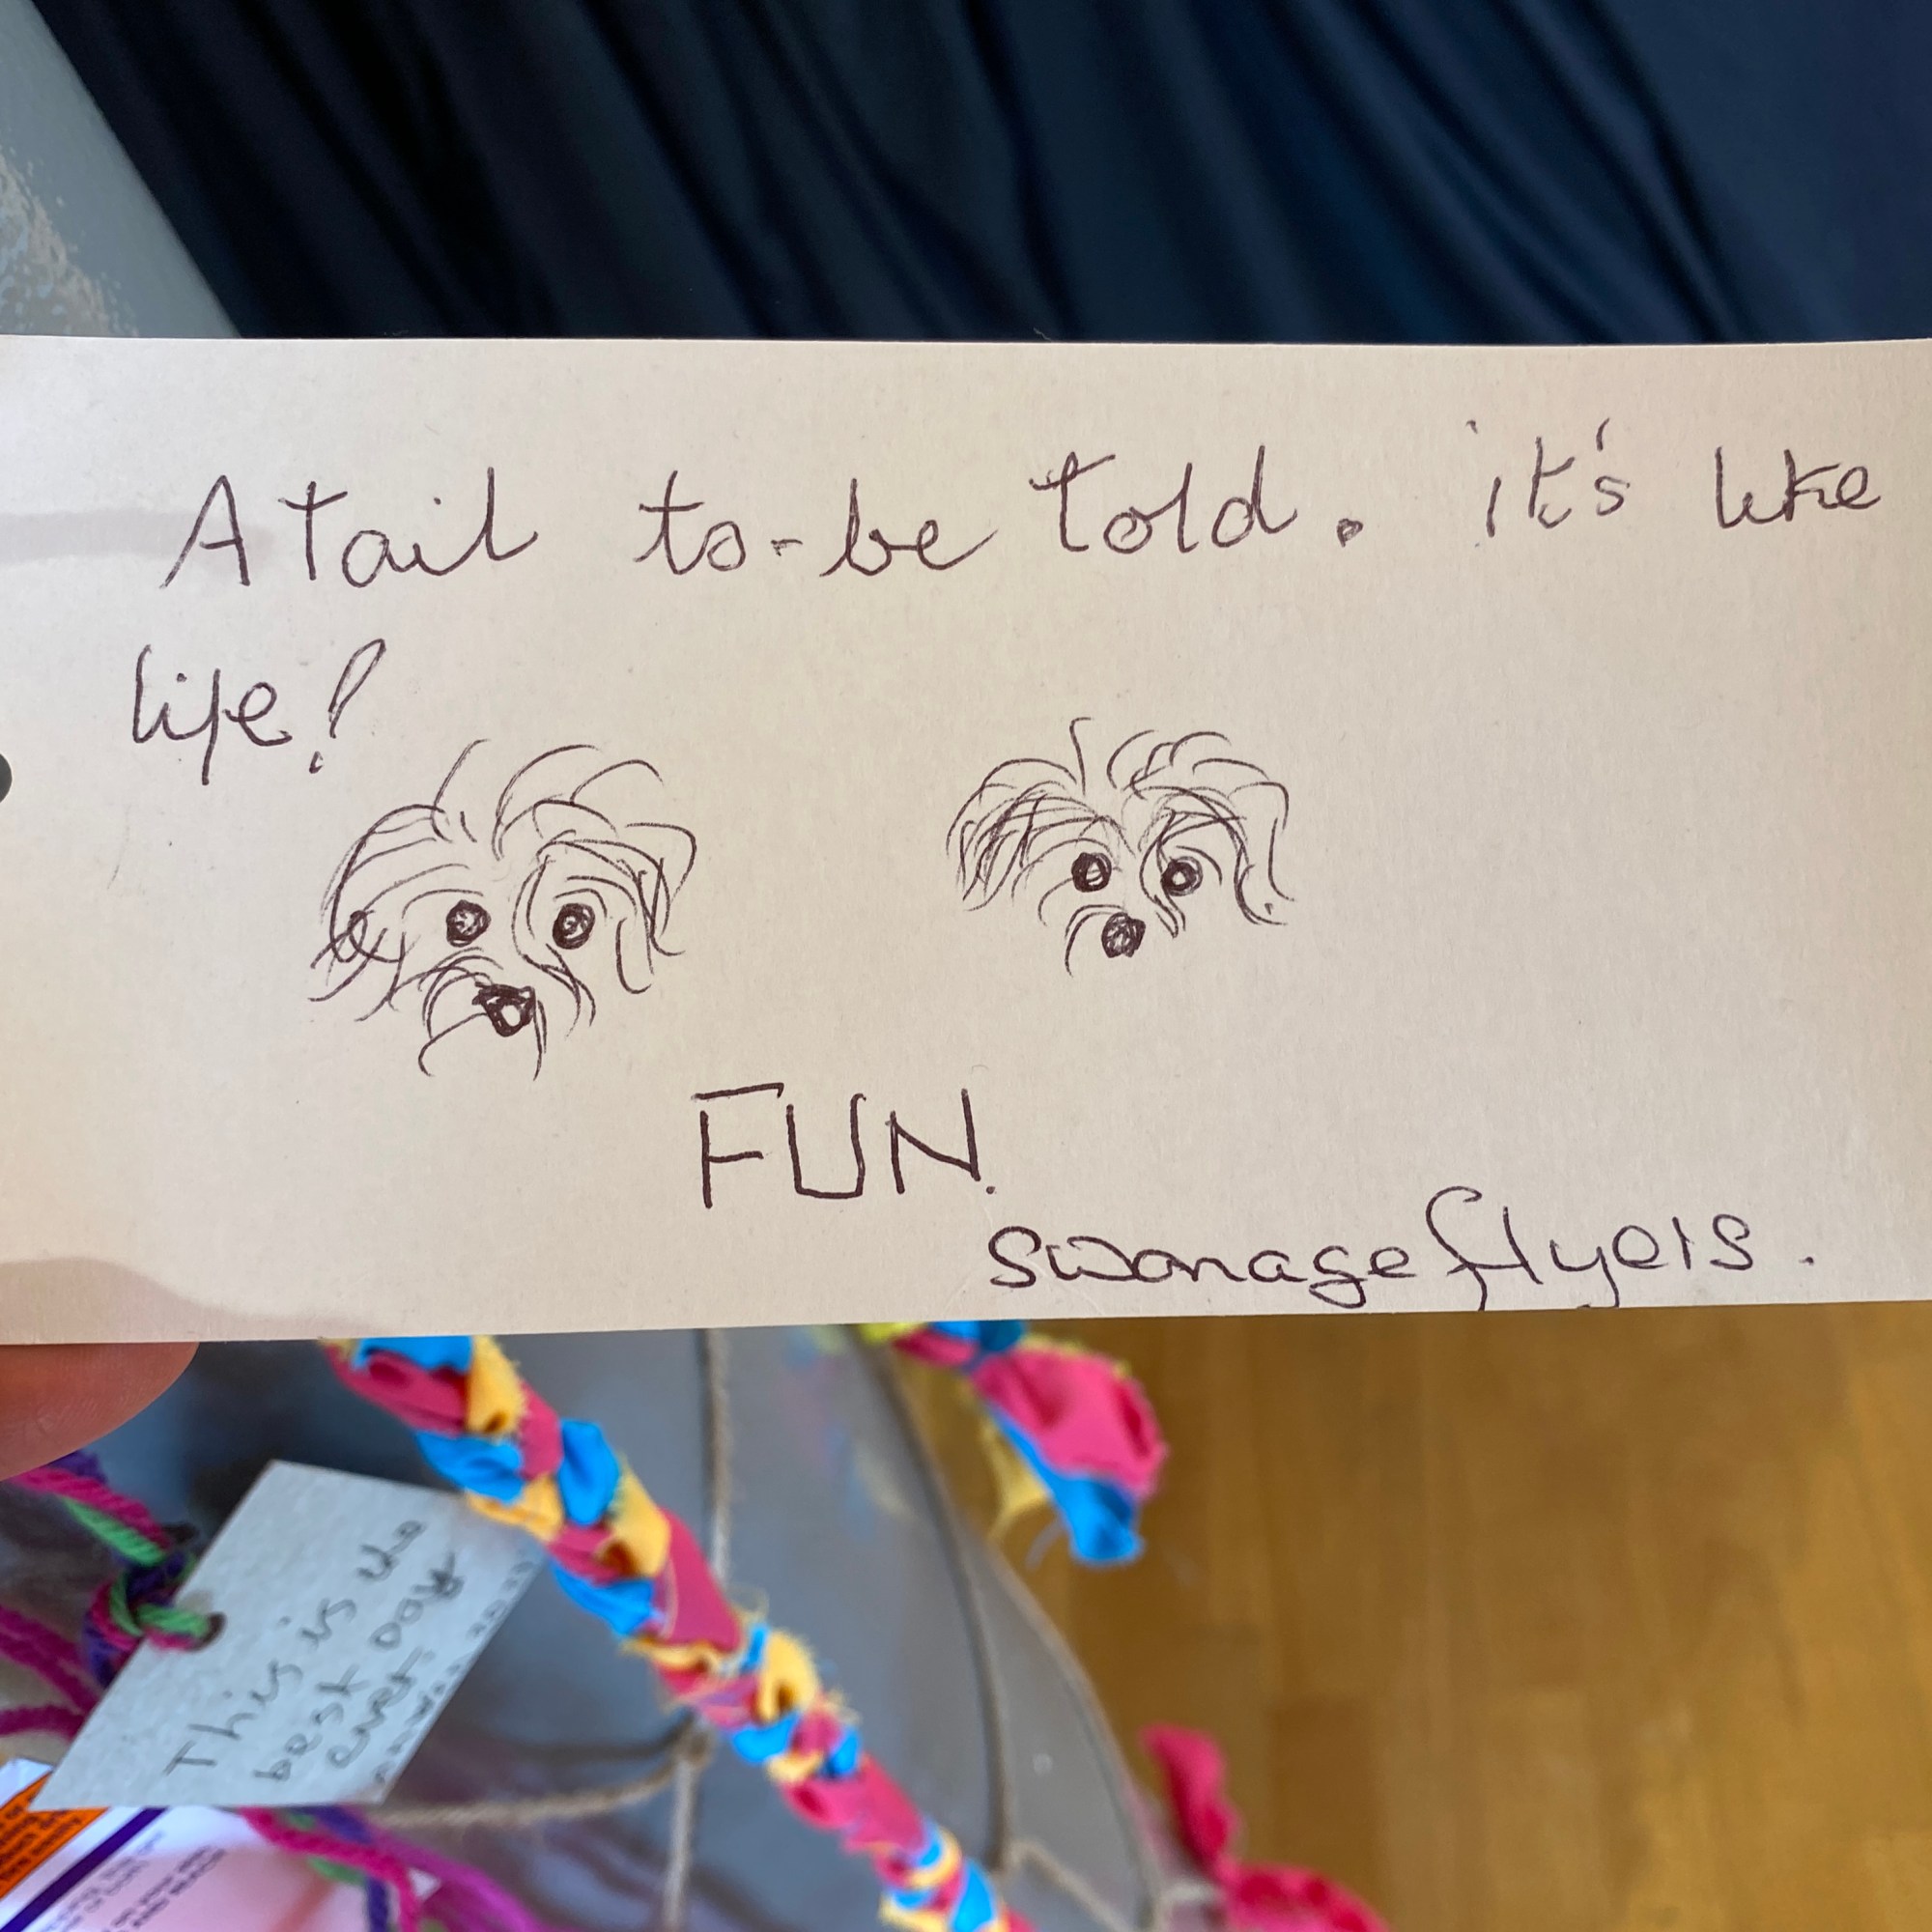 A Tail to-be Told. it's like
life!
FUN.
swanage flyers.
This is the
best day
ever.